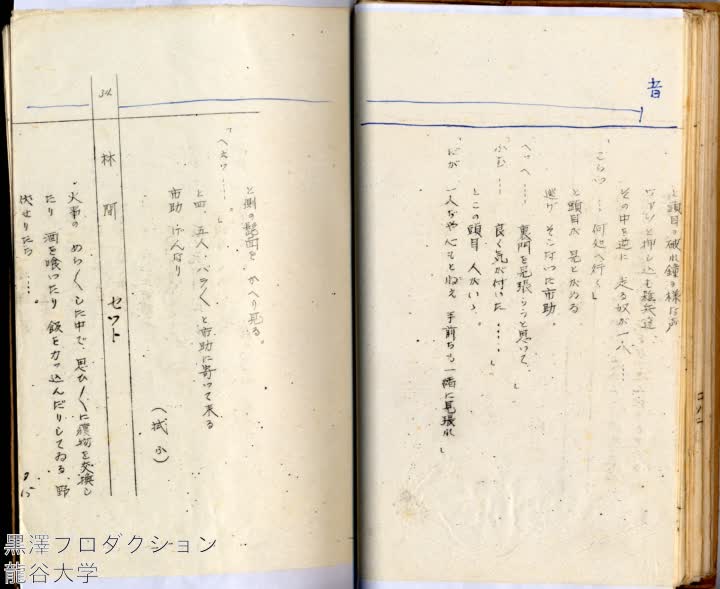 音
と頭目の破れ鐘の様な声
ワァッと押し込む雑兵達
その中を逆に 走る奴が一人……
「こらッ …… 何処へ行く」
と頭目が 見とがめる
逃げ そこなった市助。
「へッへ …… 裏門を見張らうと思って」
「ふむ …… 良く気が付いた……」
とこの頭目 人がいゝ。
「だが 一人ぢや心もとねえ 手前たちも一緒に見張れ」
と側の髭面を かへり見る。
「へえッ ……」
と四、五人 バラ〱 と市助に寄って来る
市助 げんなり
(拭ふ)
34
林間
セット
火事の めら〱した中で、思ひ〱に獲物を交換し
たり 酒を喰ったり 飯をカッ込んだりしてゐる 野
伏せりたち ……。
黒澤プロダクション
龍谷大学